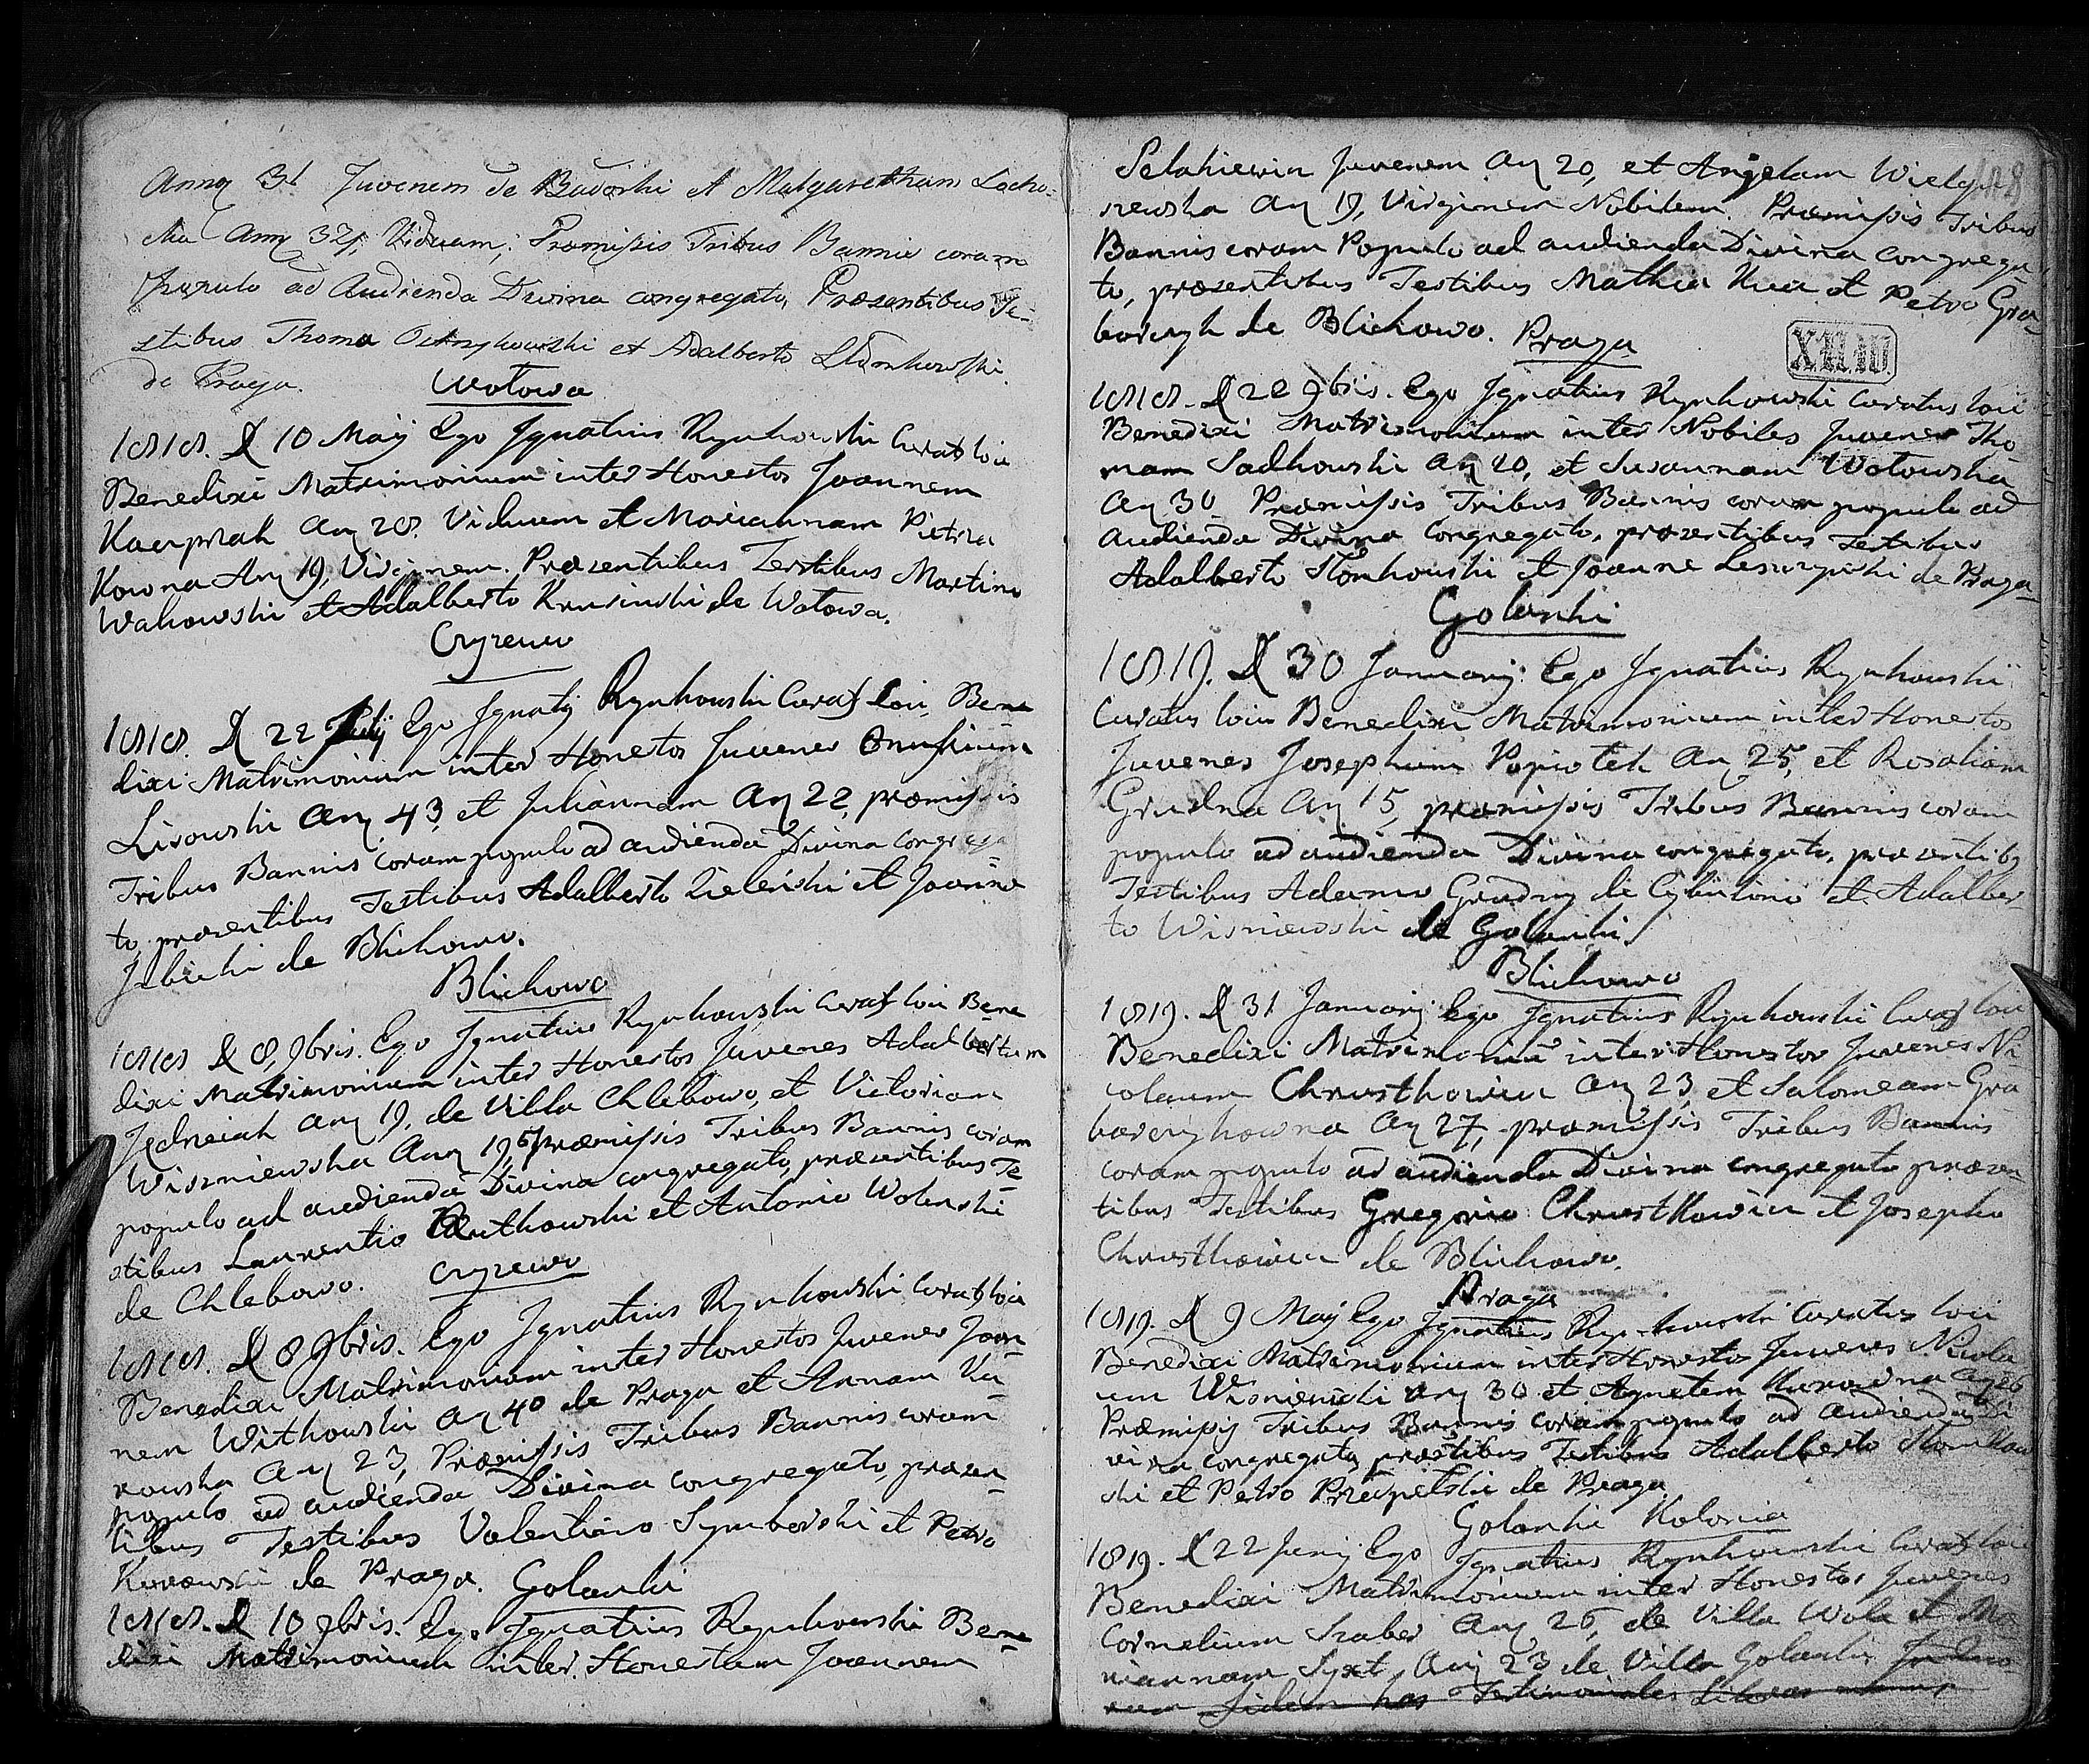 Anny 31 Juvenem de Budorki et Malgaretham Locho-
cka Anny 32, Viduam, Premissis Tribus Bannis coram
Populo ad Audienda Divina congregato, Præsentibus Te-
stibus Thoma et Adalberto Słomkowski
de Praga.
Wotowa
1818. D 10 Maij Ego Jgnatius Rynkowski Curatg loci
Benedixi Matrimonium inter Honestos Joannem
Kacprzak Any 28. Viduum et Mariannam Pietra
kowna Any 19, Virginem. Præsentibus Testibus Martino
Wakowski et Adalberto Krusinski de Wotowa.
Cyzewo
1818. D 22 Julij Ego Jgnatij Rynkowski Curatg Loci, Bene
dixi Matrimonium inter Honestos Juvenes Onufrium
Lisowski Any 43, et Juliannam Any 22, præmissis
Tribus Bannis coram populo ad audienda Divina congrega
to, præsentibus Testibus Adalberto Zielenski et Joanne
Jzbicki de Blichowo.
Blichowo
1818 D 8, 9bris. Ego Jgnatius Rynkowski Curatg loci Bene
dixi Matrimonium inter Honestos Juvenes Adalbertum
Jedrzeiak Any 19, de Villa Chlebowo, et Victoriam
Wiszniewska Any 19, præmissis Tribus Bannis coram
populo ad audienda Divina congregato, præsentibus Te
stibus Laurentio Rutkowski et Antonio Wolenski
de Chlebowo.
Cyzewo
1818. D 8 9bris. Ego Jgnatius Rynkowski Curatg loci
Benedixi Matrimonium inter Honestos Juvenes Joan
nem Witkowski Any 40 de Praga et Annam Ku-
rowska Any 23, Præmissis Tribus Bannis coram
populo ad audienda Divina congregato, præsen-
tibus Testibus Valentino Symborski et Petro
Kurowski de Praga.
Golanki
1818. D 10 9bris. Ego Jgnatius Rynkowski Bene
dixi Matrimonium inter Honestam Joannem
Selakiewicz Juvenem Any 20, et Angelam Wielgu
szewska Any 19, Virginem Nobilem. Præmissis Tribus
Bannis coram Populo ad audienda Divina congrega
to, præsentibus Testibus Mathia Kuca et Petro Gra-
barczyk de Blichowo.
Praga
XII.III.
1818. D 22 9bris. Ego Jgnatius Rynkowski Curatus loci
Benedixi Matrimonium inter Nobiles Juvenes Tho
mam Sadkowski Any 20, et Susannam Wotowska
Any 30 Præmissis Tribus Bannis coram populo ad
audienda Divina congregato, præsentibus testibus
Adalberto Słomkowski et Joanne Leszczynski de Praga
Golanki
1819. D 30 Januarij. Ego Jgnatius Rynkowski
Curatus loci Benedixi Matrimonium inter Honestos
Juvenes Josephum Popiołek Any 25, et Rosaliam
Grudna Any 15, præmissis Tribus Bannis coram
populo ad audienda Divina congregato, præsentibg
Testibus Adamo Grudny de Cybulino et Adalber-
to Wisniewski de Golanki.
Blichowo
1819. D 31 Januarij Ego Jgnatius Rynkowski Curatg loci
Benedixi Matrimoniū inter Honestos Juvenes Ni
colaum Chrustkowicz Any 23 et Salomeam Gra
barczykowna Any 27, præmissis Tribus Bannis
coram populo ad audienda Divina congregato præsen-
tibus Testibus Gregorio Chrustkowicz et Josepho
Chrustkowicz de Blichowo.
Praga
1819. D 9 Maij Ego Jgnatius Rynkowski Curatus loci
Benedixi Matrimonium inter Honestos Juvenes Nicola
um Wisniewski Any 30 et Agnetem Any 26
Præmissis Tribus Bannis coram populo ad audienda Di
vina congregato, præstibus Testibus Adalberto Słomkow
ski et Petro Przepełski de Praga.
Golanki Kolonia
1819. D 22 Junij Ego Jgnatius Rynkowski Curatg loci
Benedixi Matrimonium inter Honestos Juvenes
Cornelium Szaber Any 26, de Villa Wola et Ma
riannam Syxt, Any 23 de Villa Golanki Jn quo-
rum fidem has Testimoniales Literas